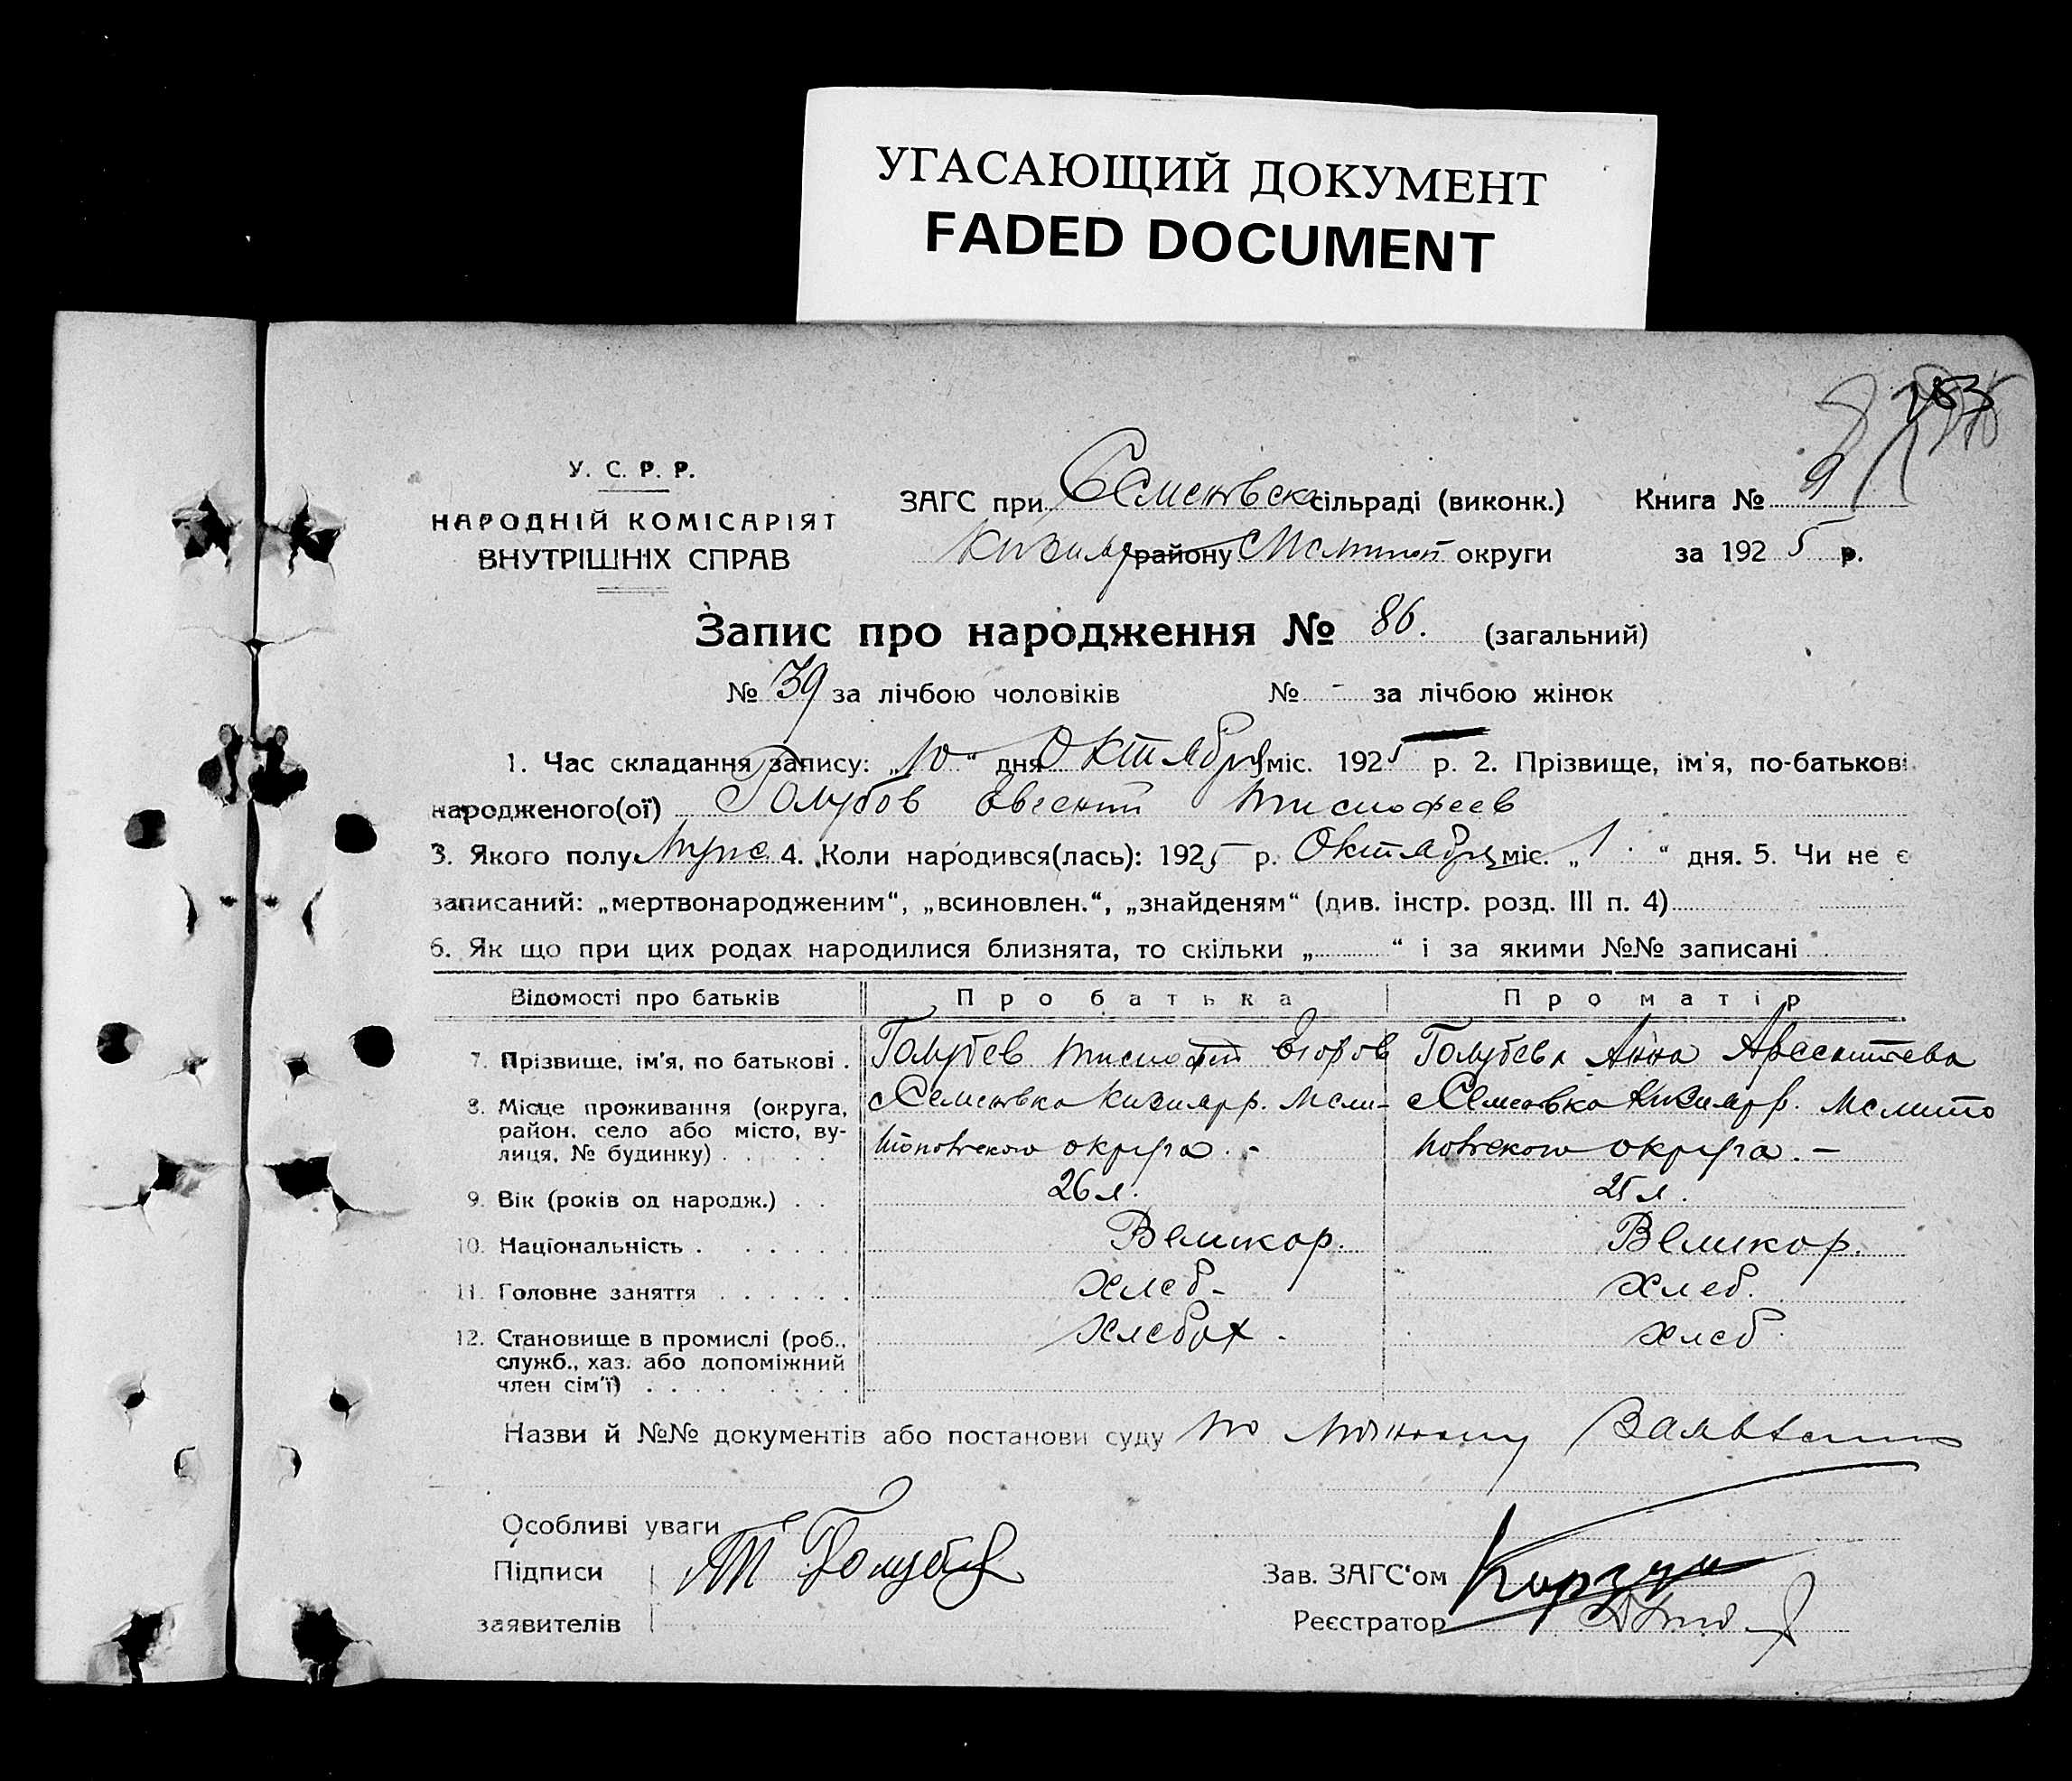 УГАСАЮЩИЙ ДОКУМЕНТ
FADED DOCUMENT
283
У. С. Р. Р.
НАРОДНІЙ КОМІСАРІЯТ
ВНУТРІШНІХ СПРАВ
ЗАГС при Семеновско сільраді (виконк.) Книга №
Кизияр району Мелитоп округи за 1925 р.
Запис про народження № 86. (загальний)
№ 39 за лічбою чоловіків № - за лічбою жінок
1. Час складання запису: „10“ дня Октября міс. 1925 р. 2. Прізвище, ім'я, по-батькові
народженого(ої) Голубов Евгений Тимофеев
3. Якого полу Муже 4. Коли народився(лась): 1925 р. Октября міс. „1.“ дня. 5. Чи не є
записаний: „мертвонародженим“, „всиновлен.“, „знайденям“ (див. інстр. розд. III п. 4)
6. Як що при цих родах народилися близнята, то скільки „ “ і за якими №№ записані
Відомості про батьків Про батька Про матір
7. Прізвище, ім'я, по батькові . Голубев Тимофей Егоров Голубева Анна Арсентьева
8. Місце проживання (округа, район, село або місто, вулиця, № будинку) с Семеновка Кизияр р. Мели-
топовского округа. - с Семеновка Кизияр р. Мелито
повского округа. -
9. Вік (років од народж.) . . 26 л. 25 л.
10. Національність . Великор. Великор.
11. Головне заняття хлеб- хлеб.
12. Становище в промислі (роб., хлебох. хлеб.
служб., хаз. або допоміжний
член сім'ї)
Назви й №№ документів або постанови суду по
Особливі уваги
Підписи Т Голубев Зав. ЗАГС'ом Корзун
заявителів Реєстратор